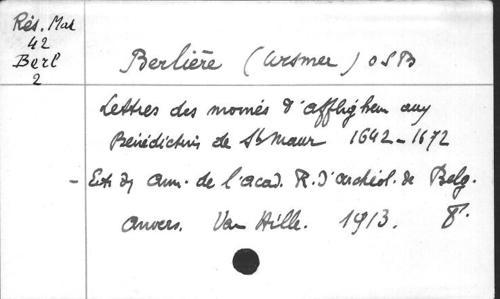 Rés. Mal
42
Berl
2
Berlière (Ursmer) OSB
Lettres des moines d'Afflighem aux
Bénédictins de St Maur 1642-1672
- Ext. ds ann. de l'acad. R. d'archéol. de Belg.
Anvers. Van Hille. 1913. 8°.